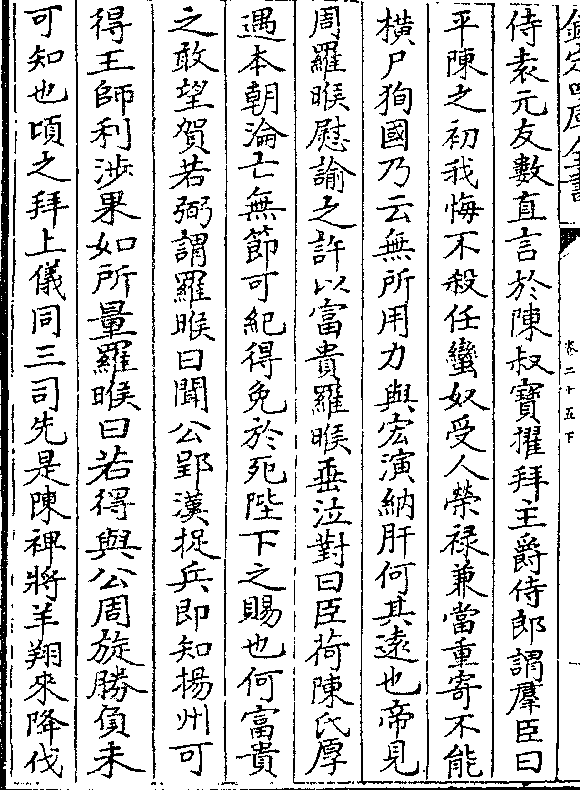 欽定四庫全書
卷二十五下
侍袁元友數直言於陳叔寶擢拜主爵侍郎謂羣臣曰
平陳之初我悔不殺任蠻奴受人榮禄兼當重寄不能
横尸狥國乃云無所用力與宏演納肝何其遠也帝見
周羅睺慰諭之許以富貴羅睺垂泣對曰臣荷陳氏厚
遇本朝淪亡無節可紀得免於死陛下之賜也何富貴
之敢望賀若弼謂羅睺曰聞公郢漢捉兵即知揚州可
得王師利涉果如所量羅睺曰若得與公周旋勝負未
可知也頃之拜上儀同三司先是陳裨將羊翔來降伐